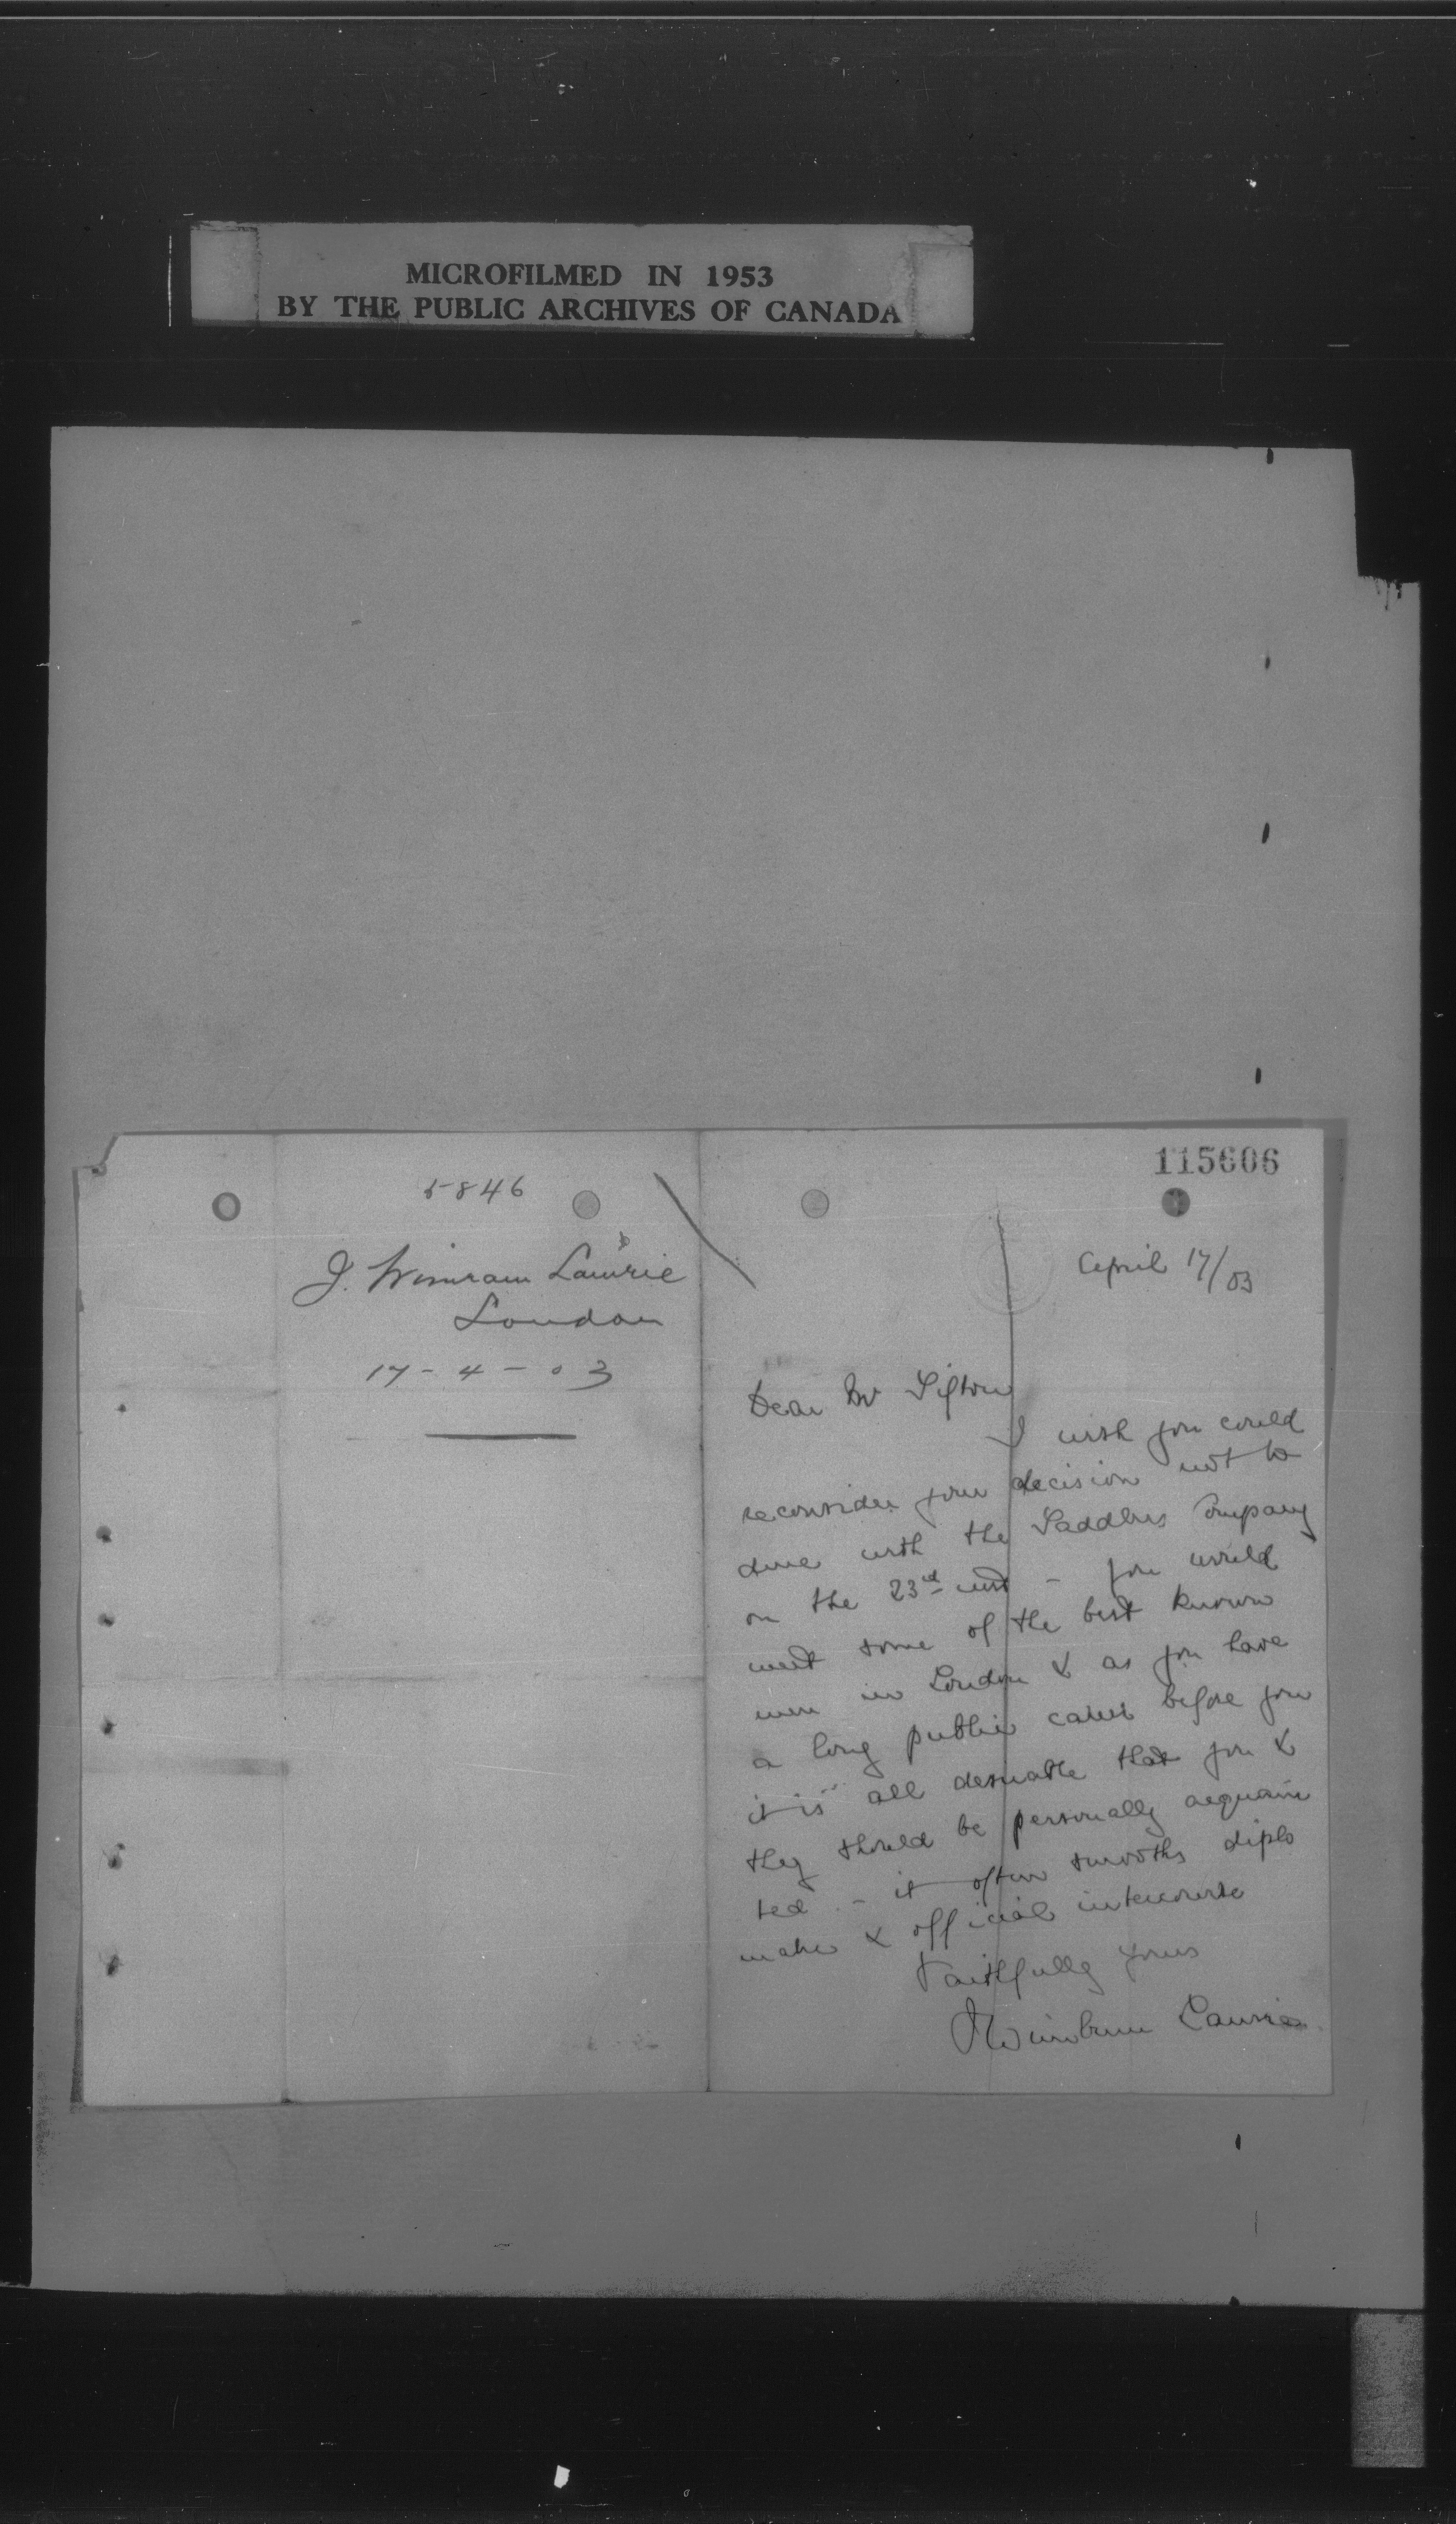 MICROFILMED IN 1953
BY THE PUBLIC ARCHIVES OF CANADA
5846
J. Wimram Laurie
London
17-4-03
115606
April 17/03
Dear Mr Sifton
I wish you could
reconsider your decision not to
dine with the Saddlers Company
on the 23rd inst - you would
meet some of the best known
men in London & as you have
a long public career before you
it is all desirable that you &
they should be personally acquain
ted - it often smooths diplo
matic & official intercourse
Faithfully yours
J Wimburn Laurie